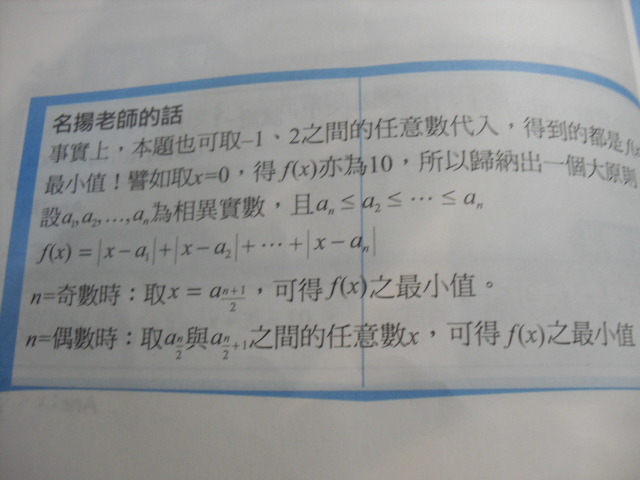 名揚老師的話
事實上，本題也可取–1、2之間的任意數代入，得到的都是f(x)
最小值！譬如取x=0，得 f(x)亦為10，所以歸納出一個大原則
設a₁,a₂,…,aₙ為相異實數，且aₙ ≤ a₂ ≤ ⋯ ≤ aₙ
f(x) = |x−a₁|+|x−a₂|+⋯+|x−aₙ|
n=奇數時：取x = a_{\frac{n+1}{2}}，可得f(x)之最小值。
n=偶數時：取a_{\frac{n}{2}}與a_{\frac{n}{2}+1}之間的任意數x，可得 f(x)之最小值